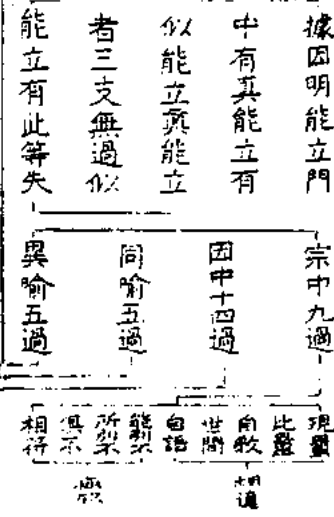 據因明能立門
中有真能立有
似能立真能立
者三支無過似
能立有此等失
宗中九過
因中十四過
同喻五過
異喻五過
現量
比量
自教
世間
自語
能別不
所別不
俱不
相符
相違
極